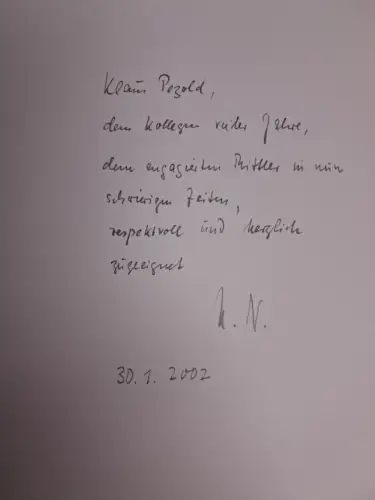 Klaus Pezold,
dem Kollegen vieler Jahre,
dem engagierten Mittler in nun
schwierigen Zeiten,
respektvoll und herzlich
zugeeignet
N.
30.1.2002